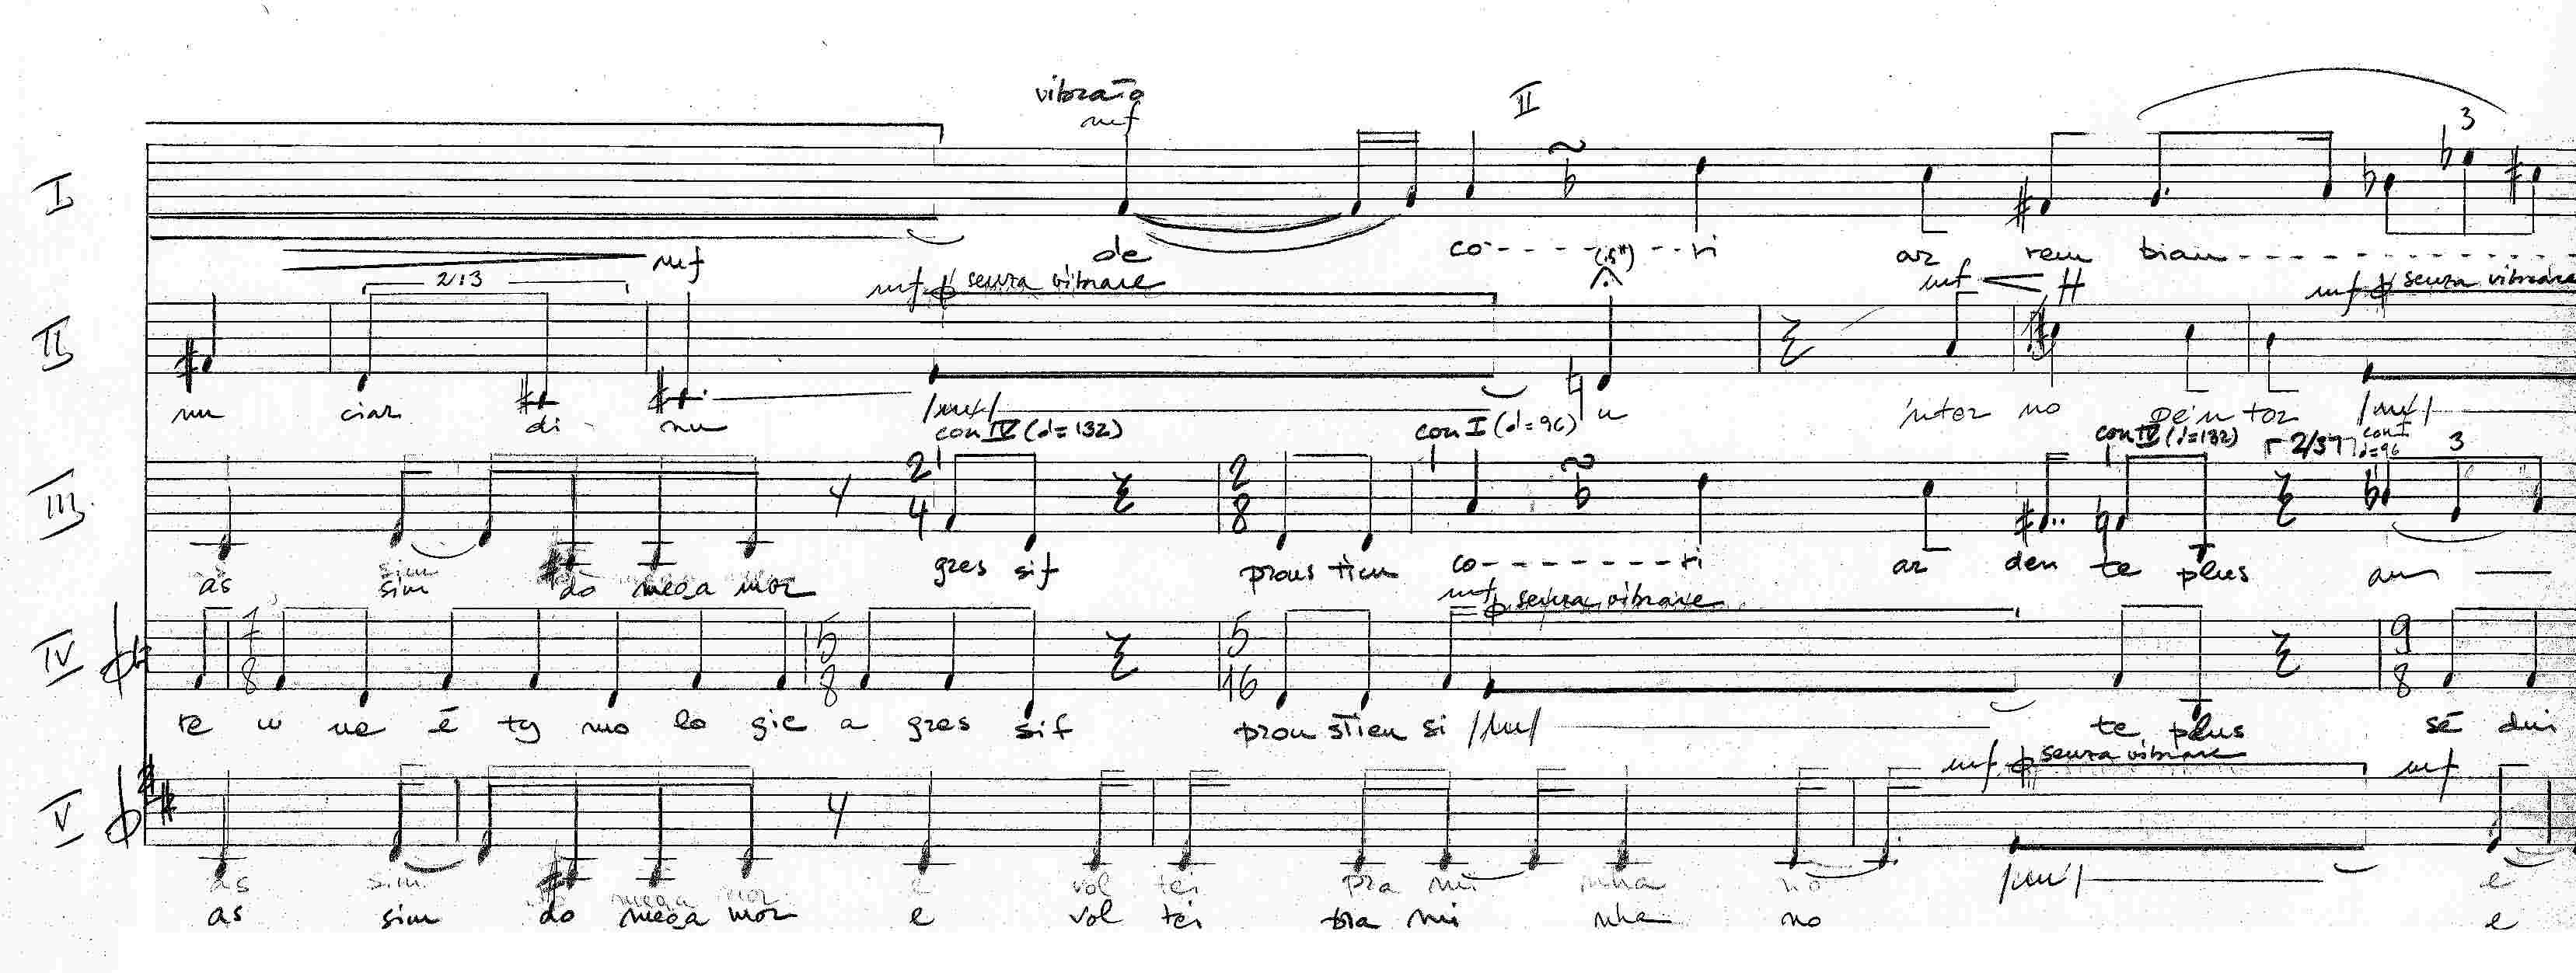 vibrato
mf
II
3
I
de co - - - - - - ri ar rem bian - - - - - -
mf
2:3
mf senza vibrare
(5")
mf
mf senza vibrare
II
nu ciar di nu /m/ u inter no pein tor /m/
con IV (♩=132) con I (♩=96) con IV (♩=132) 2/3 con I ♩=96
3
III
2 4 2 8
as sim do mega mor gres sif prous tien co - - - - - - ri ar den te plus au
sim
mf senza vibrare
IV
7 8 5 8 5 16 9 8
te u ne é ty mo lo gie a gres sif prou stien si /m/ te plus sé dui
mf senza vibrare mf
V
/m/
as sim mega mor e vol tei pra mi nha no e
as sim do mega mor e vol tei tra mi nha no e